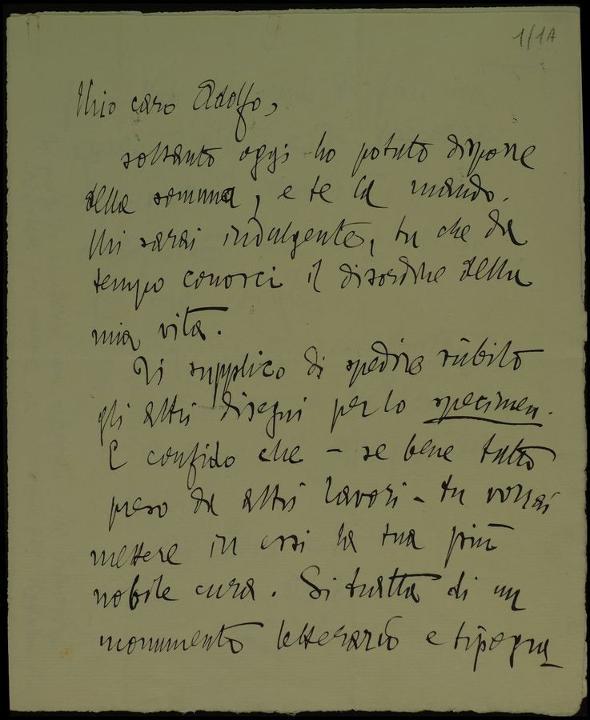 1/1A
Mio caro Adolfo,
soltanto oggi ho potuto disporre
della somma, e te la mando.
Mi sarai indulgente, tu che da
tempo conosci il disordine della
mia vita.
Ti supplico di spedire sùbito
gli altri disegni per lo specimen.
E confido che – se bene tutto
preso da altri lavori – tu vorrai
mettere in essi la tua più
nobile cura. Si tratta di un
monumento letterario e tipogra